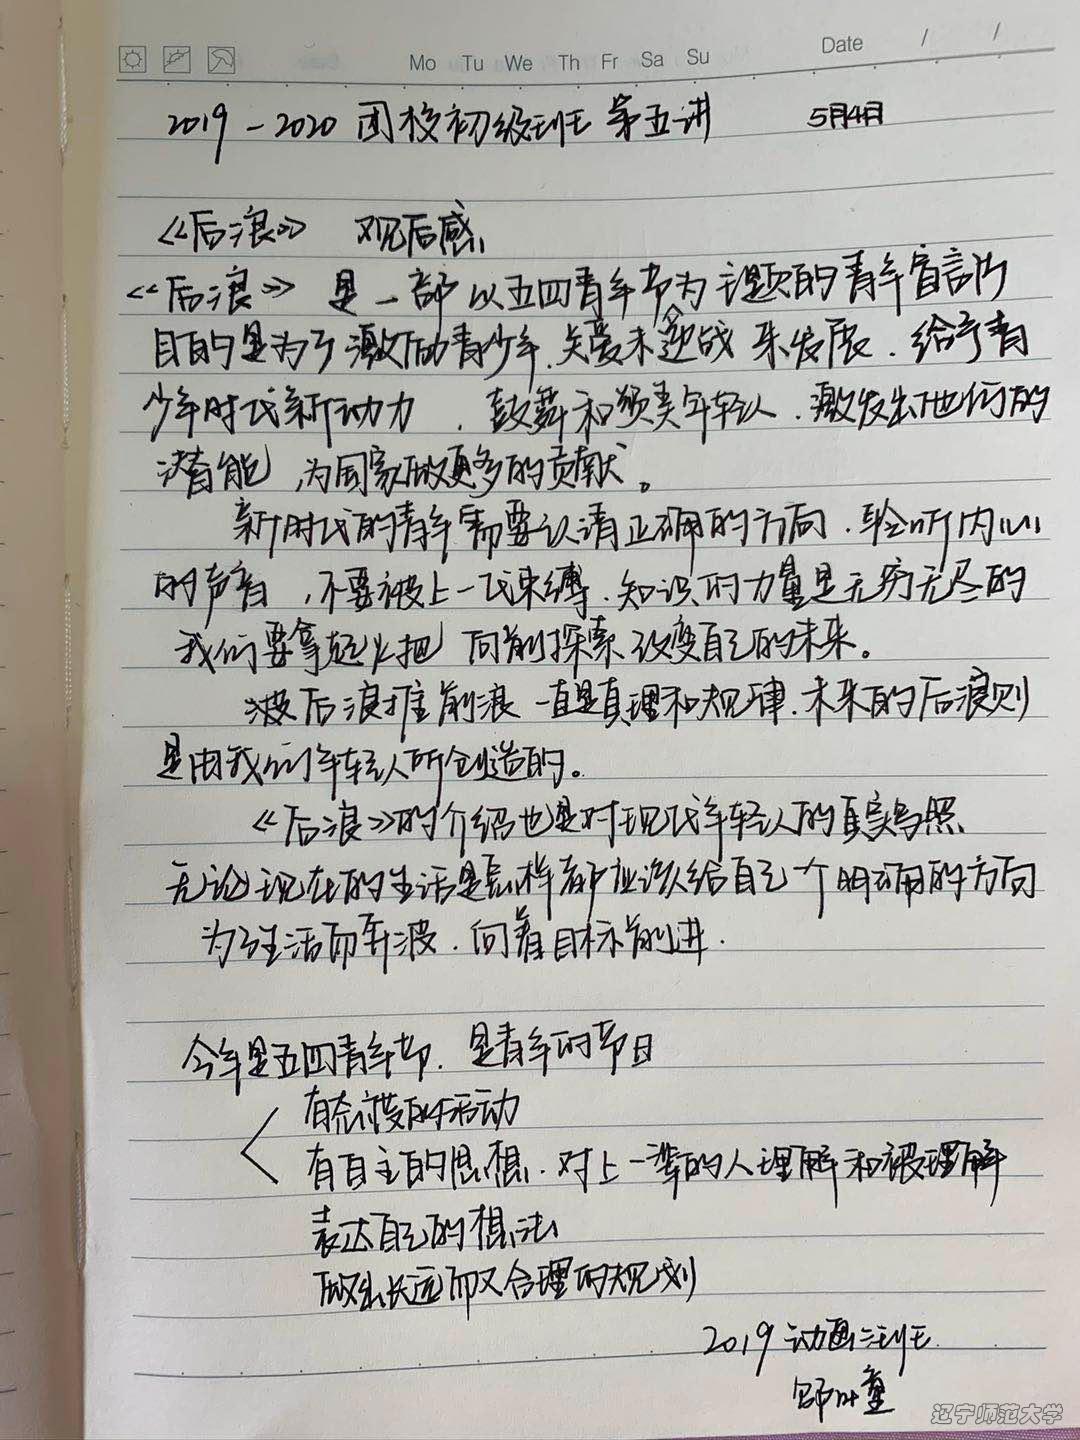 Mo Tu We Th Fr Sa Su Date / /
2019-2020 团校初级班 第五讲 5月4日
《后浪》 观后感
《后浪》 是一部以五四青年节为主题的青年宣言片
目的是为了激励青少年,关爱未来发展,给予青
少年时代新动力 ,鼓舞和赞美年轻人,激发出他们的
潜能,为国家做更多的贡献。
新时代的青年需要认清正确的方向,聆听内心
的声音,不要被上一代束缚,知识的力量是无穷无尽的
我们要拿起火把 向前探索 改变自己的未来。
后浪推前浪一直是真理和规律,未来的后浪则
是由我们年轻人所创造的。
《后浪》的介绍也是对现代年轻人的真实写照
无论现在的生活是怎样都应该给自己一个明确的方向
为了生活而奔波,向着目标前进.
今年是五四青年节,是青年的节日
有态度的行动
有自主的思想,对上一辈的人理解和被理解
表达自己的想法
做出长远而又合理的规划
2019 动画班
辽宁师范大学